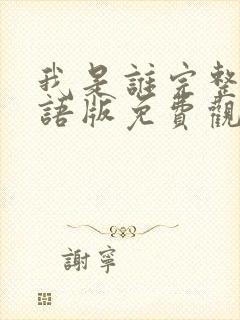 我是誰完整
語版免費觀
謝寧